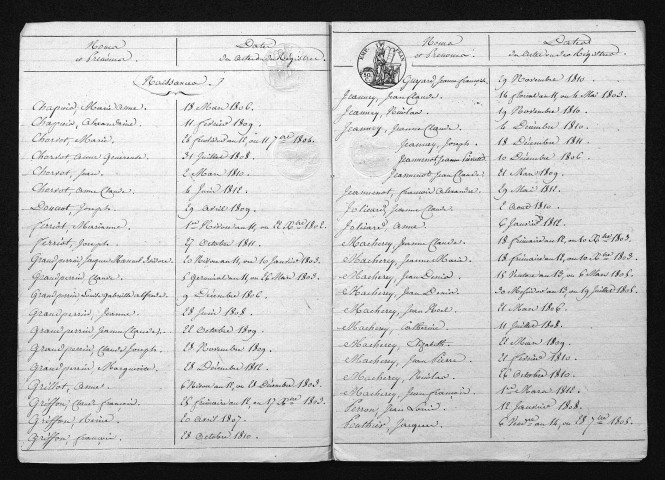 Noms et Prénoms.
Dates des Actes des Registres.
Naissances.
Chapuis, Marie Anne. 18 Mars 1806.
Chapuis, Alexandrine. 11 Février 1809.
Chorvot, Marie. an 12, ou 11 7bre 1804.
Chorvot, Anne Genevieve. 31 Juillet 1808.
Chorvot, Jean. 2 Mars 1810.
Chorvot, Anne Claude. 4 Juin 1812.
Doucot, Joseph. 29 Avril 1809.
Ferriot, Marianne. 1er Nivose an 11, ou 22 Xbre 1802.
Ferriot, Joseph. 27 Octobre 1811.
Grandperrin, Jaque 20 Nivose an 11, ou 10 Janvier 1803.
Grandperrin, Claude. 5 Germinal an 11, ou 26 Mars 1803.
Grandperrin, Louis Gabriel Alfred. 9 Décembre 1806.
Grandperrin, Jeanne. 28 Juin 1808.
Grandperrin, Jeanne Claude. 22 Octobre 1809.
Grandperrin, Claude Joseph. 28 Novembre 1809.
Grandperrin, Marguerite. 28 Décembre 1812.
Grillot, Anne. 6 Nivose an 12, ou 28 Décembre 1803.
Griffon, Claude François. 26 frimaire an 12, ou 17 Xbre 1803.
Griffon, Reine. 20 Avril 1807.
Griffon, François. 28 Octobre 1810.
Noms et Prénoms.
Dates des Actes des Registres.
Guyard, Jeanne Françoise. 29 Novembre 1810.
Jeanney, Jean Claude. 16 floréal an 11, ou 6 Mai 1803.
Jeanney, Nicolas. 19 Novembre 1810.
Jeanney, Jeanne Claude. 4 Décembre 1810.
Jeanney, Joseph. 18 Décembre 1811.
Jeannenot, 10 Décembre 1806.
Jeannenot, Jean Claude. 21 Mars 1809.
Jeannenot, François Alexandre. 29 Mai 1812.
Joliard, Jeanne Claude. 2 Août 1810.
Joliard, Anne. 6 Janvier 1812.
Macherey, Jeanne Claude. 18 frimaire an 12, ou 10 Xbre 1803.
Macherey, Jeanne Marie. 18 frimaire an 12, ou 10 Xbre 1803.
Macherey, Jean Denis. 15 Ventose an 13, ou 6 Mars 1805.
Macherey, Jean Denis. 30 Messidor an 13, ou 19 Juillet 1805.
Macherey, Jean 21 Mars 1806.
Macherey, Catherine. 11 Juillet 1808.
Macherey, Elizabeth. 21 Mars 1809.
Macherey, Jean Pierre. 21 Février 1810.
Macherey, Nicolas. 26 Octobre 1810.
Macherey, Jean François. 1er Mars 1812.
Perron, Jean Louis. 12 Janvier 1808.
Pouthier, Jacques. 6 Vend.re an 14, ou 28 7bre 1805.